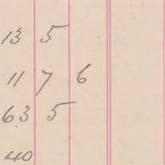 13 5
11 7 6
63 5
40